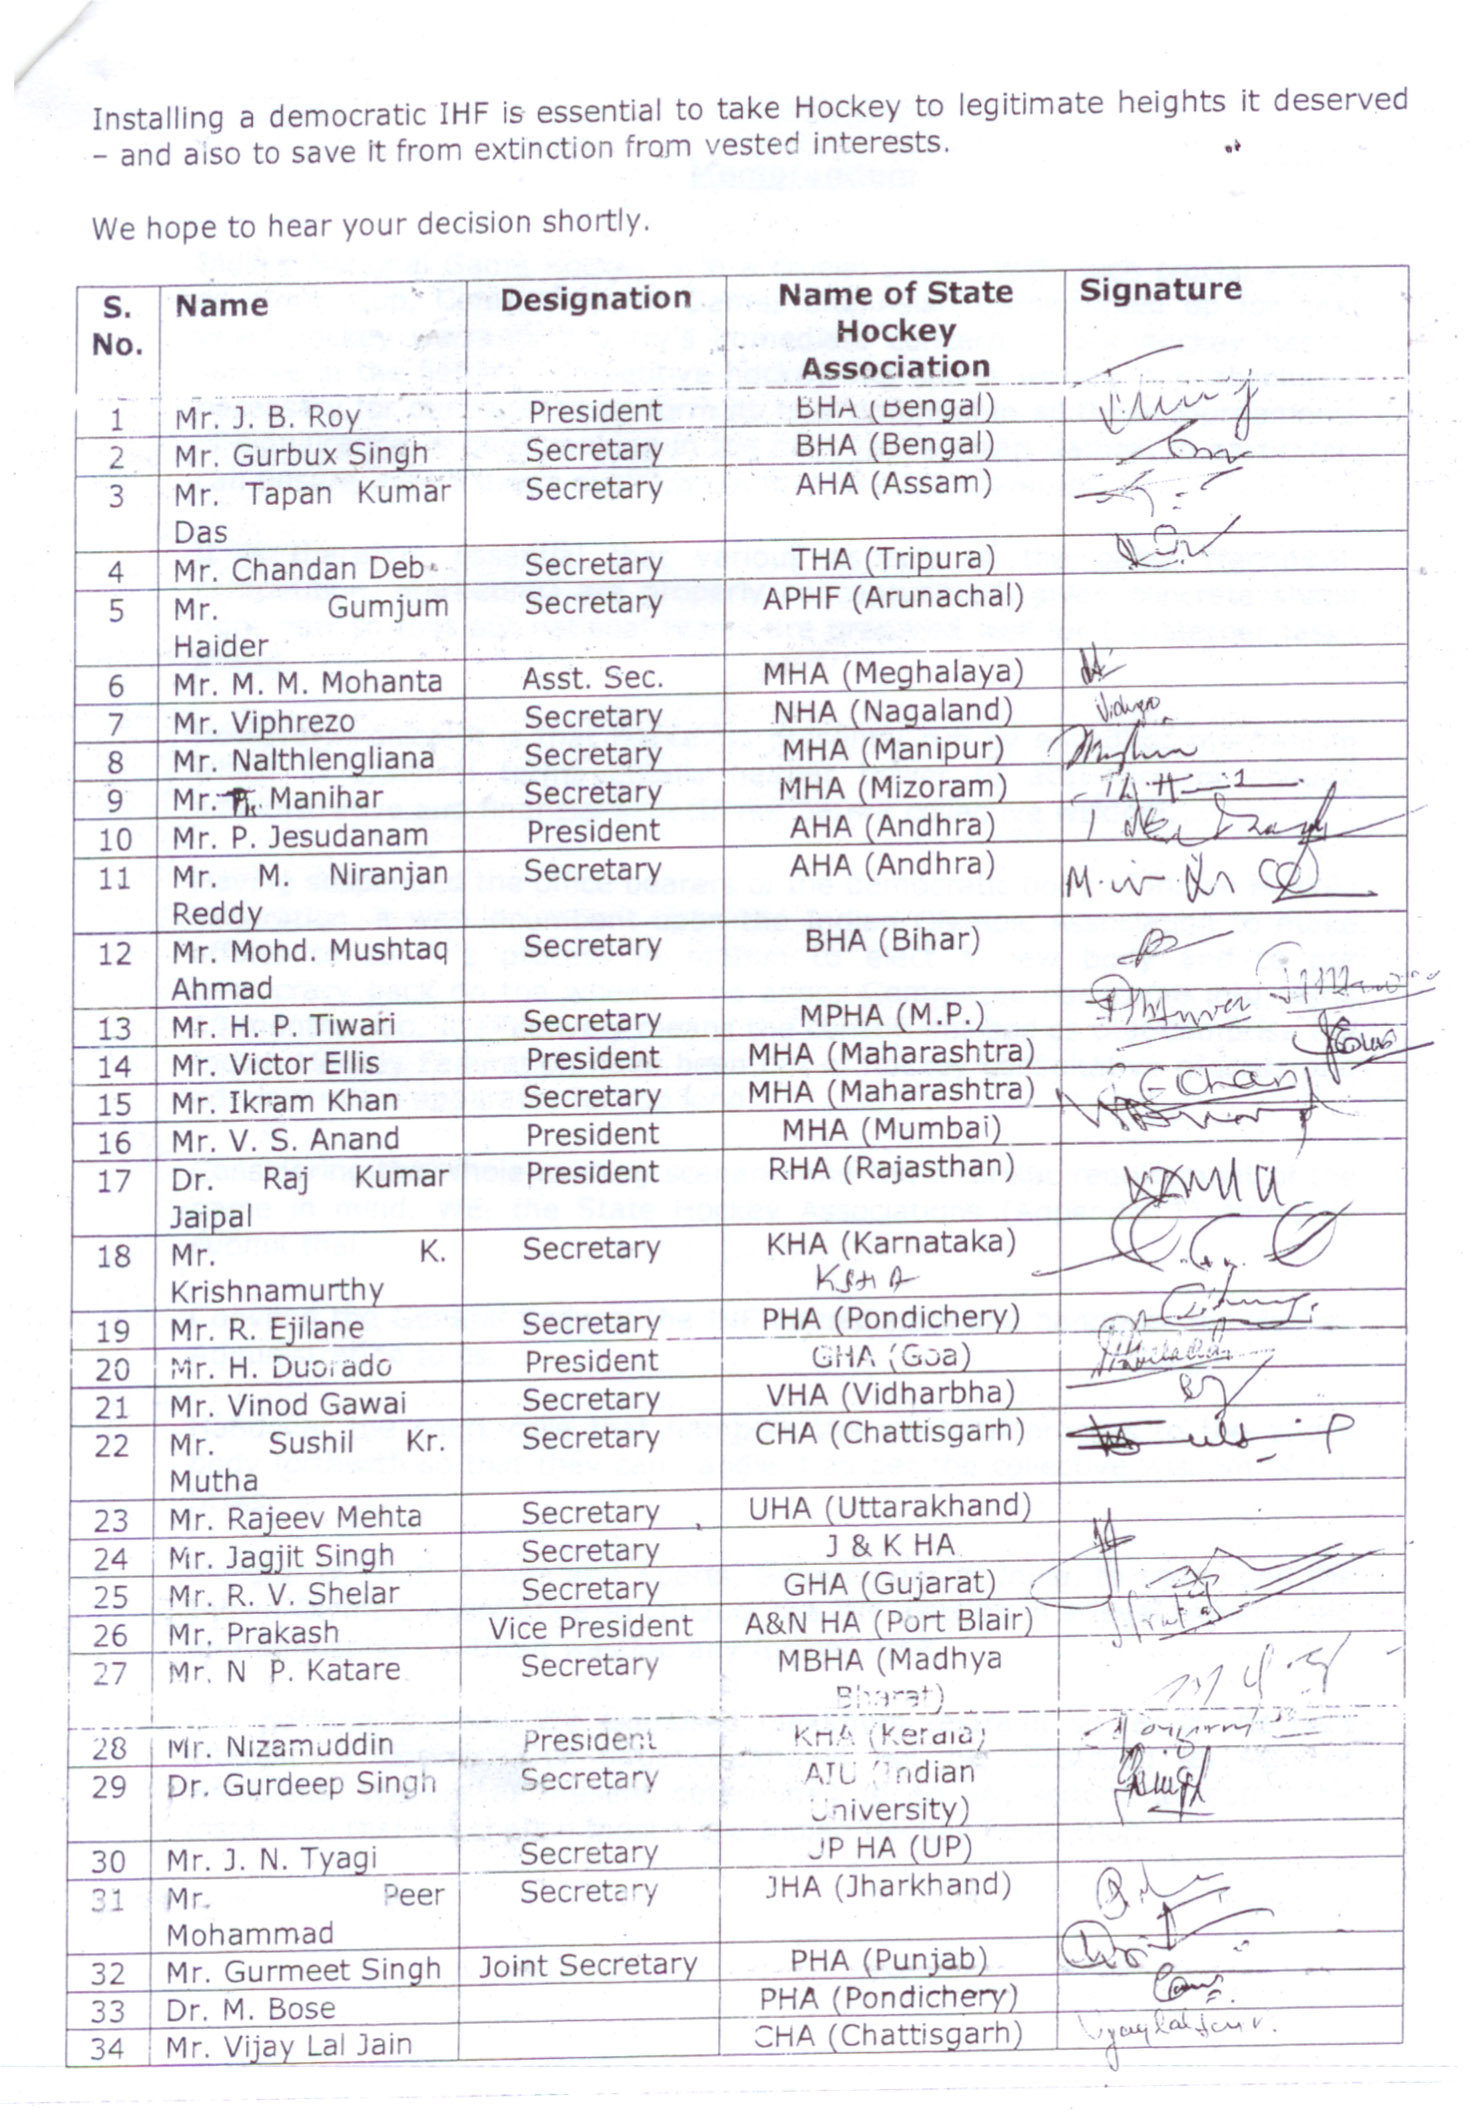 Installing a democratic IHF is essential to take Hockey to legitimate heights it deserved
– and also to save it from extinction from vested interests.
We hope to hear your decision shortly.
S. No. Name Designation Name of State Hockey Association Signature
1 Mr. J. B. Roy President BHA (Bengal)
2 Mr. Gurbux Singh Secretary BHA (Bengal)
3 Mr. Tapan Kumar Das Secretary AHA (Assam)
4 Mr. Chandan Deb Secretary THA (Tripura)
5 Mr. Gumjum Haider Secretary APHF (Arunachal)
6 Mr. M. M. Mohanta Asst. Sec. MHA (Meghalaya)
7 Mr. Viphrezo Secretary NHA (Nagaland)
8 Mr. Nalthlengliana Secretary MHA (Manipur)
9 Mr. Th Manihar Secretary MHA (Mizoram)
10 Mr. P. Jesudanam President AHA (Andhra)
11 Mr. M. Niranjan Reddy Secretary AHA (Andhra)
12 Mr. Mohd. Mushtaq Ahmad Secretary BHA (Bihar)
13 Mr. H. P. Tiwari Secretary MPHA (M.P.)
14 Mr. Victor Ellis President MHA (Maharashtra)
15 Mr. Ikram Khan Secretary MHA (Maharashtra)
16 Mr. V. S. Anand President MHA (Mumbai)
17 Dr. Raj Kumar Jaipal President RHA (Rajasthan)
18 Mr. K. Krishnamurthy Secretary KHA (Karnataka) KSHA
19 Mr. R. Ejilane Secretary PHA (Pondichery)
20 Mr. H. Duorado President GHA (Goa)
21 Mr. Vinod Gawai Secretary VHA (Vidharbha)
22 Mr. Sushil Kr. Mutha Secretary CHA (Chattisgarh)
23 Mr. Rajeev Mehta Secretary UHA (Uttarakhand)
24 Mr. Jagjit Singh Secretary J & K HA
25 Mr. R. V. Shelar Secretary GHA (Gujarat)
26 Mr. Prakash Vice President A&N HA (Port Blair)
27 Mr. N P. Katare Secretary MBHA (Madhya Bharat)
28 Mr. Nizamuddin President KHA (Kerala)
29 Dr. Gurdeep Singh Secretary AIU (Indian University)
30 Mr. J. N. Tyagi Secretary UP HA (UP)
31 Mr. Peer Mohammad Secretary JHA (Jharkhand)
32 Mr. Gurmeet Singh Joint Secretary PHA (Punjab)
33 Dr. M. Bose PHA (Pondichery)
34 Mr. Vijay Lal Jain CHA (Chattisgarh)